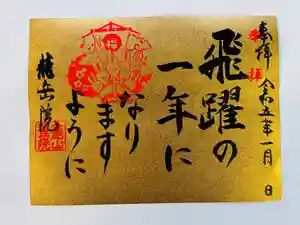 奉拝
令和五年一月 日
飛躍の
一年に
なり
ます
ように
龍岳院